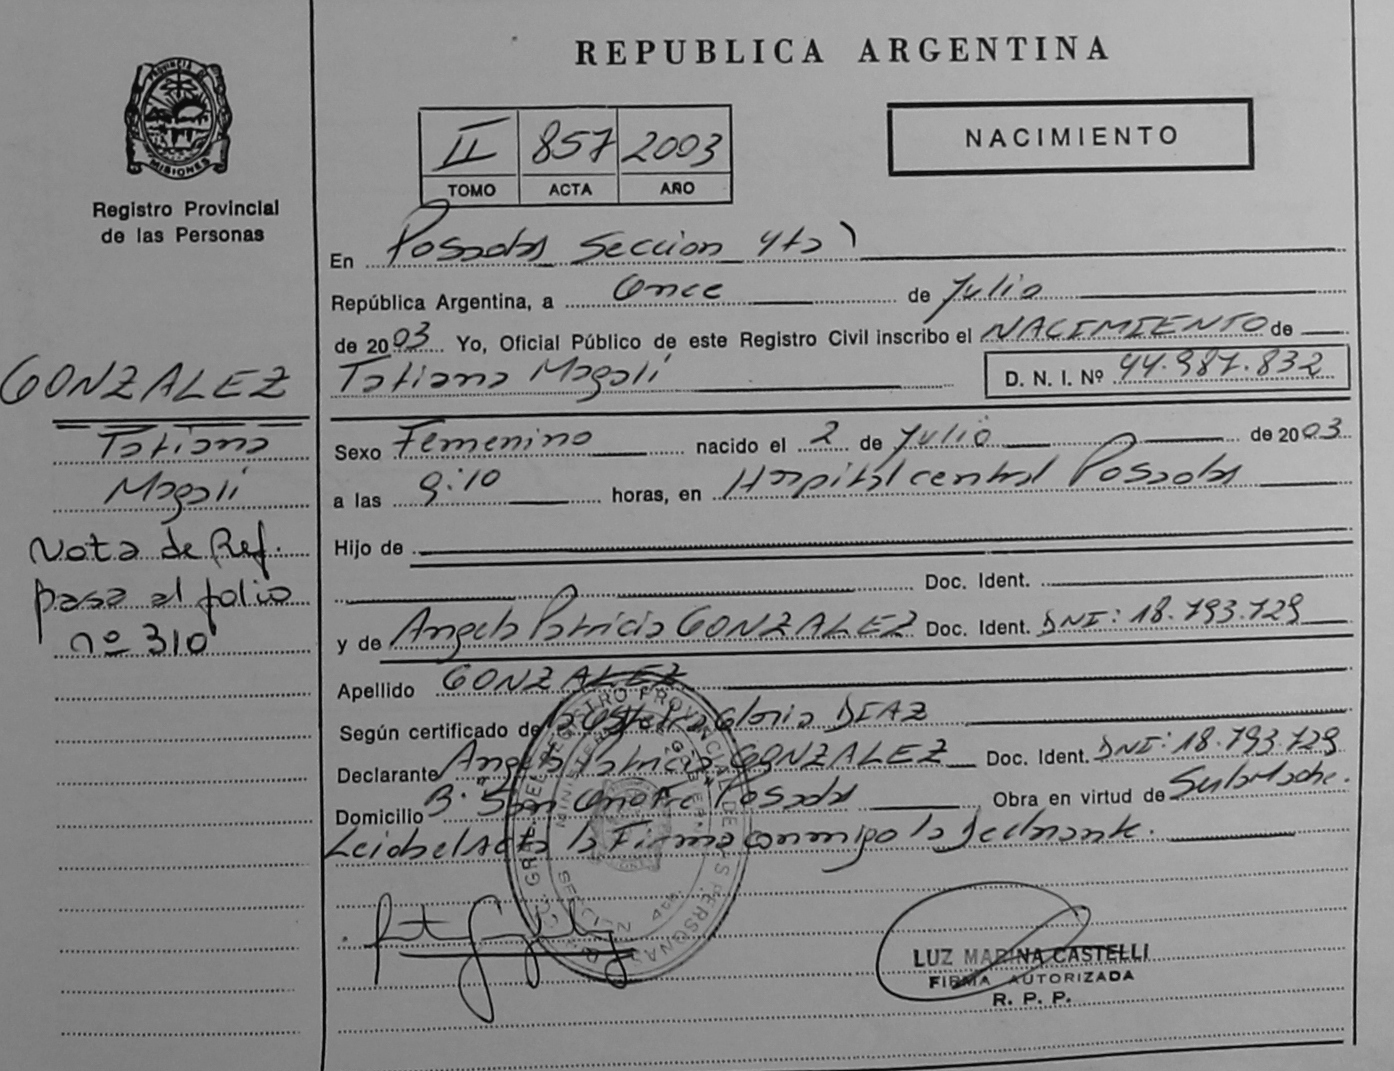 REPUBLICA ARGENTINA
PROVINCIA DE
MISIONES
Registro Provincial
de las Personas
II 857 2003
TOMO ACTA AÑO
NACIMIENTO
En Posadas Seccion 4ta
República Argentina, a Once de Julio
de 2003 Yo, Oficial Público de este Registro Civil inscribo el NACIMIENTO de
Tatiana Magalí D. N. I. Nº 44.987.832
GONZALEZ
Tatiana
Magalí
Nota de Ref.
pasa al folio
nº 310
Sexo Femenino nacido el 2 de Julio de 2003
a las 9:10 horas, en Hospital central Posadas
Hijo de
Doc. Ident.
y de Angela Patricia GONZALEZ Doc. Ident. DNI: 18.793.729
Apellido GONZALEZ
Según certificado de la Obstetra Gloria DIAZ
Declarante Angela Patricia GONZALEZ Doc. Ident. DNI: 18.793.729
Domicilio B° "San Onofre" Posadas Obra en virtud de Su
Leida el Acta la Firma conmigo la declarante.
REGISTRO PROVINCIAL DE LAS PERSONAS
LUZ MARINA CASTELLI
FIRMA AUTORIZADA
R. P. P.